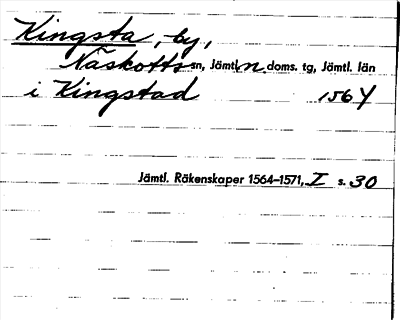 Kingsta, by,
Näskotts sn, Jämtl. n. doms. tg, Jämtl. län
i Kingstad 1564
Jämtl. Räkenskaper 1564–1571, I s. 30